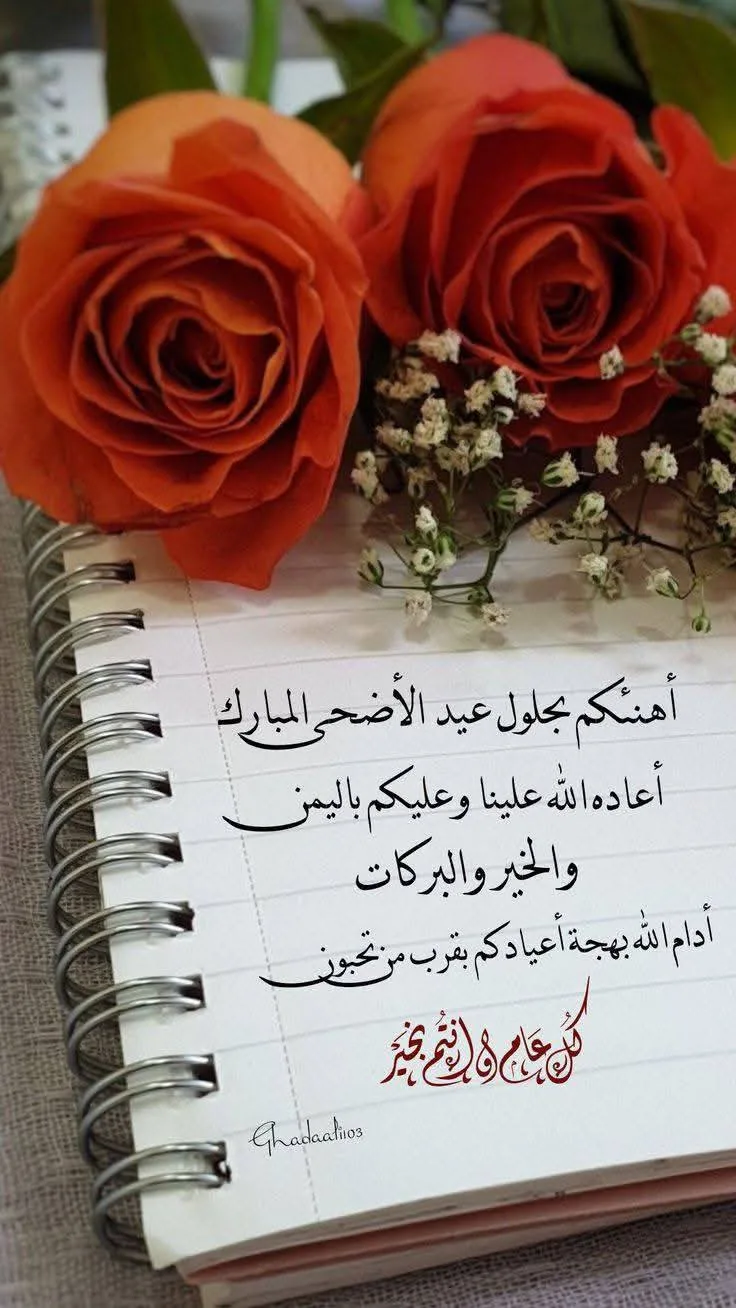 أهنئكم بحلول عيد الأضحى المبارك
أعاده الله علينا وعليكم باليمن
والخير والبركات
أدام الله بهجة أعيادكم بقرب من تحبون
كُل عَام وانتُم بخَير
Ghadaali103